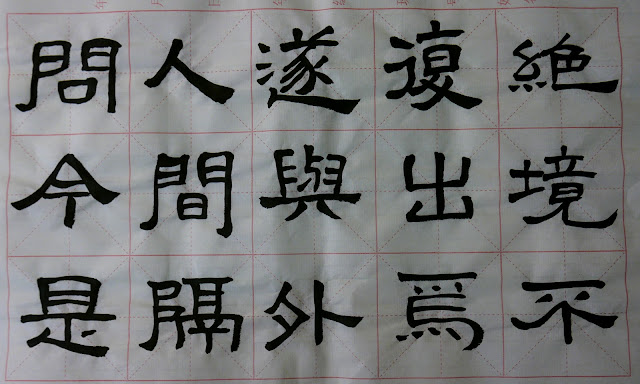 絶境不
復出焉
遂與外
人間隔
問今是